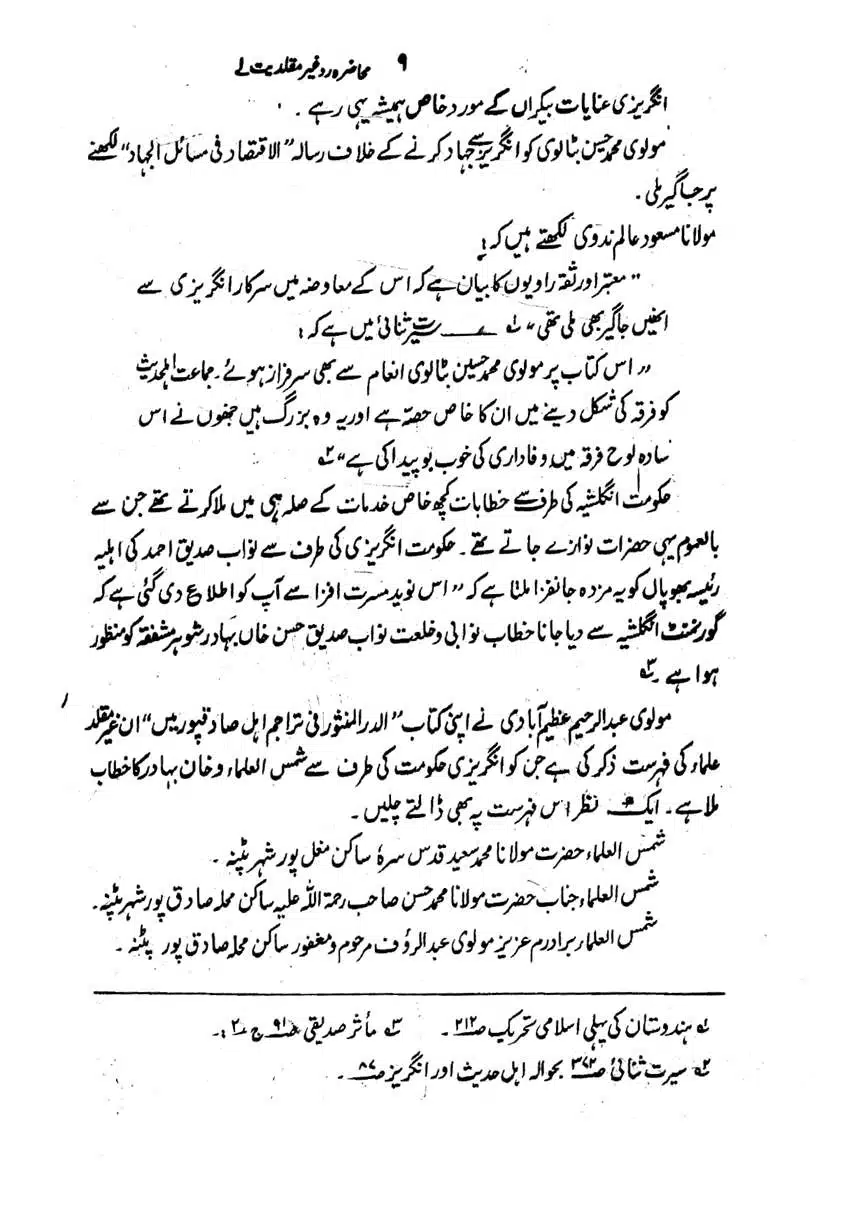 ۹ محاضرہ رد غیر مقلدیت لے
انگریزی عنایات بیکراں کے مورد خاص ہمیشہ یہی رہے ۔
مولوی محمد حسین بٹالوی کو انگریز سے جہاد کرنے کے خلاف رسالہ "الاقتصاد فی مسائل الجہاد" لکھنے
پر جاگیر ملی ۔
مولانا مسعود عالم ندوی لکھتے ہیں کہ :
"معتبر اور ثقہ راویوں کا بیان ہے کہ اس کے معاوضہ میں سرکار انگریزی سے
انھیں جاگیر بھی ملی تھی" ۱ــہ ــــــ سیرت ثنائی میں ہے کہ :
"اس کتاب پر مولوی محمد حسین بٹالوی انعام سے بھی سرفراز ہوئے ۔ جماعت اہلحدیث
کو فرقہ کی شکل دینے میں ان کا خاص حصہ ہے اور یہ وہ بزرگ ہیں جنھوں نے اس
سادہ لوح فرقہ میں وفاداری کی خوب بو پیدا کی ہے" ۲ــہ
حکومت انگلشیہ کی طرف سے خطابات کچھ خاص خدمات کے صلہ ہی میں ملا کرتے تھے جن سے
بالعموم یہی حضرات نوازے جاتے تھے ۔ حکومت انگریزی کی طرف سے نواب صدیق احمد کی اہلیہ
رئیسہ بھوپال کو یہ مزدہ جانفزا ملتا ہے کہ "اس نوید مسرت افزا سے آپ کو اطلاع دی گئی ہے کہ
گورنمنٹ انگلشیہ سے دیا جانا خطاب نوابی وخلعت نواب صدیق حسن خاں بہادر شوہر مشفقہ کو منظور
ہوا ہے ۳ــہ
مولوی عبدالرحیم عظیم آبادی نے اپنی کتاب "الدر المنثور فی تراجم اہل صادقپور میں" ان غیر مقلد
علماء کی فہرست ذکر کی ہے جن کو انگریزی حکومت کی طرف سے شمس العلماء و خان بہادر کا خطاب
ملا ہے ۔ ایک نظر اس فہرست پہ بھی ڈالتے چلیں ۔
شمس العلماء حضرت مولانا محمد سعید قدس سرہٗ ساکن مغل پور شہر پٹنہ ۔
شمس العلماء جناب حضرت مولانا محمد حسن صاحب رحمۃ اللہ علیہ ساکن محلہ صادق پور شہر پٹنہ ۔
شمس العلماء برادرم عزیز مولوی عبدالرؤف مرحوم ومغفور ساکن محلہ صادق پور پٹنہ ۔
۱ــہ ہندوستان کی پہلی اسلامی تحریک صـ۲۱۲ ۔ ۳ــہ مآثر صدیقی صـ۹۱ ج ۲ ۔
۲ــہ سیرت ثنائی صـ۳۷۲ بحوالہ اہل حدیث اور انگریز صـ۸۷ ۔